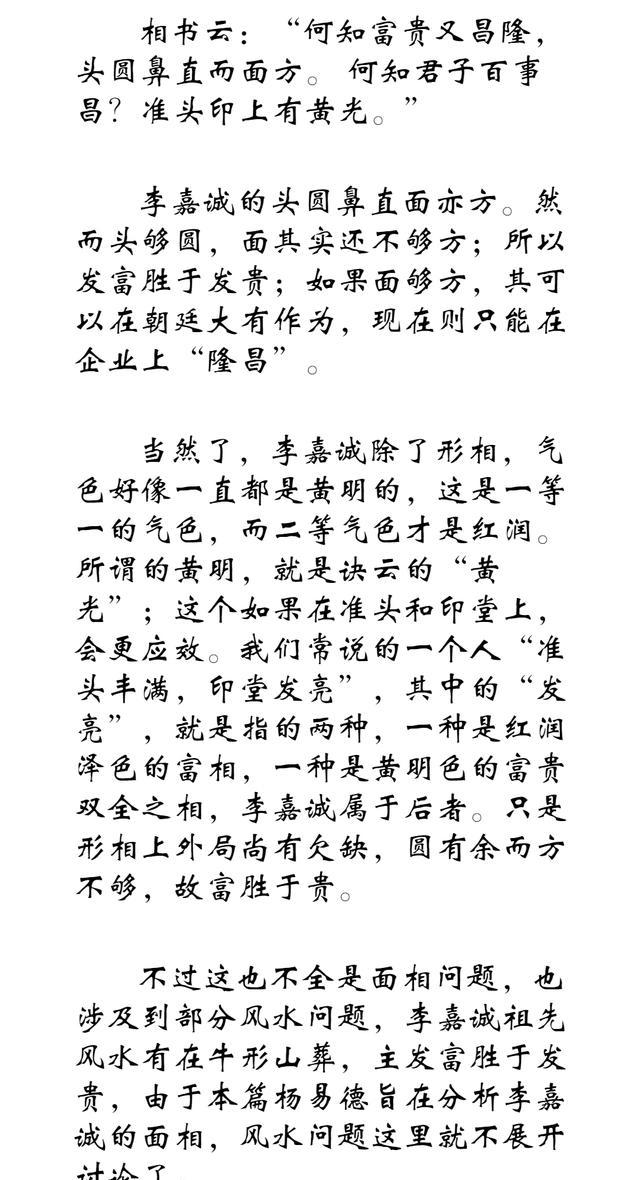 相书云：“何知富贵又昌隆，
头圆鼻直而面方。 何知君子百事
昌？准头印上有黄光。”
李嘉诚的头圆鼻直面亦方。然
而头够圆，面其实还不够方；所以
发富胜于发贵；如果面够方，其可
以在朝廷大有作为，现在则只能在
企业上“隆昌”。
当然了，李嘉诚除了形相，气
色好像一直都是黄明的，这是一等
一的气色，而二等气色才是红润。
所谓的黄明，就是诀云的“黄
光”；这个如果在准头和印堂上，
会更应效。我们常说的一个人“准
头丰满，印堂发亮”，其中的“发
亮”，就是指的两种，一种是红润
泽色的富相，一种是黄明色的富贵
双全之相，李嘉诚属于后者。只是
形相上外局尚有欠缺，圆有余而方
不够，故富胜于贵。
不过这也不全是面相问题，也
涉及到部分风水问题，李嘉诚祖先
风水有在牛形山葬，主发富胜于发
贵，由于本篇杨易德旨在分析李嘉
诚的面相，风水问题这里就不展开
讨论了。